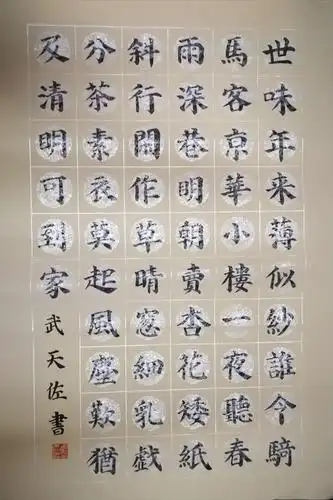 世味年来薄似紗誰今騎
馬客京華小樓一夜聽春
雨深巷明朝賣杏花矮紙
斜行閒作草晴窓細乳戯
分茶素衣莫起風塵歎猶
及清明可到家
武天佐書